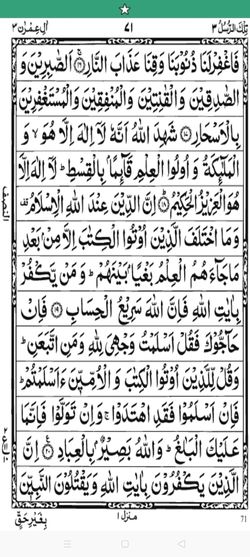 تِلْكَ الرُّسُلُ ٣ ٧١ اٰلِ عِمْرٰن ٣
فَاغْفِرْلَنَا ذُنُوْبَنَا وَقِنَا عَذَابَ النَّارِ ۝١٦ اَلصّٰبِرِيْنَ وَ
الصّٰدِقِيْنَ وَ الْقٰنِتِيْنَ وَالْمُنْفِقِيْنَ وَالْمُسْتَغْفِرِيْنَ
بِالْاَسْحَارِ ۝١٧ شَهِدَ اللّٰهُ اَنَّهٗ لَاۤ اِلٰهَ اِلَّا هُوَ ۙ وَ
الْمَلٰٓئِكَةُ وَ اُولُوا الْعِلْمِ قَآئِمًاۢ بِالْقِسْطِ ؕ لَاۤ اِلٰهَ اِلَّا
هُوَ الْعَزِيْزُ الْحَكِيْمُ ۝١٨ اِنَّ الدِّيْنَ عِنْدَ اللّٰهِ الْاِسْلَامُ ۟
وَ مَا اخْتَلَفَ الَّذِيْنَ اُوْتُوا الْكِتٰبَ اِلَّا مِنْۢ بَعْدِ
مَا جَآءَهُمُ الْعِلْمُ بَغْيًاۢ بَيْنَهُمْ ؕ وَ مَنْ يَّكْفُرْ
بِاٰيٰتِ اللّٰهِ فَاِنَّ اللّٰهَ سَرِيْعُ الْحِسَابِ ۝١٩ فَاِنْ
حَآجُّوْكَ فَقُلْ اَسْلَمْتُ وَجْهِيَ لِلّٰهِ وَمَنِ اتَّبَعَنِ ؕ
وَقُلْ لِّلَّذِيْنَ اُوْتُوا الْكِتٰبَ وَ الْاُمِّيّٖنَ ءَاَسْلَمْتُمْ ؕ
فَاِنْ اَسْلَمُوْا فَقَدِ اهْتَدَوْا ۚ وَاِنْ تَوَلَّوْا فَاِنَّمَا
عَلَيْكَ الْبَلٰغُ ؕ وَاللّٰهُ بَصِيْرٌۢ بِالْعِبَادِ ۝٢٠ اِنَّ
الَّذِيْنَ يَكْفُرُوْنَ بِاٰيٰتِ اللّٰهِ وَيَقْتُلُوْنَ النَّبِيّٖنَ
النصف
٢ ع ١٠
71 منزل ١ بِغَيْرِ حَقٍّ